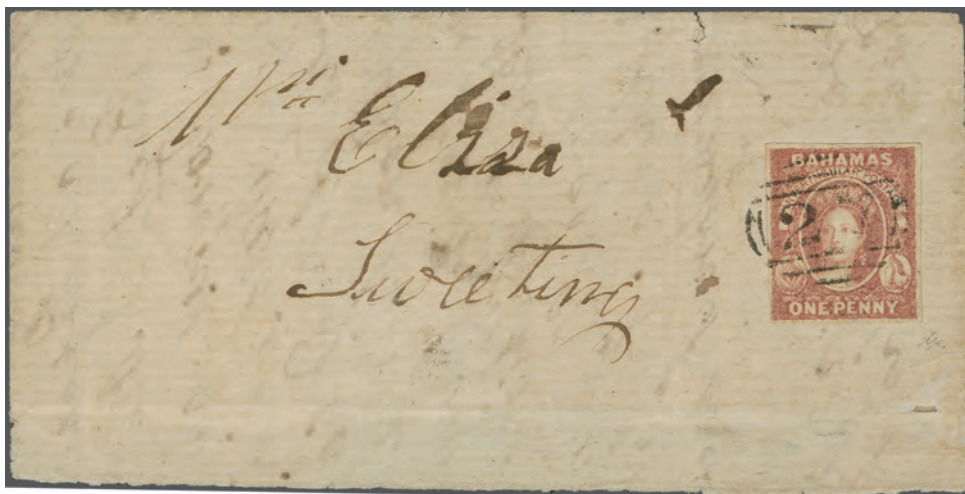 Mrs
Eliza
Sweeting
BAHAMAS
INTERINSULAR POSTAGE
2
ONE PENNY